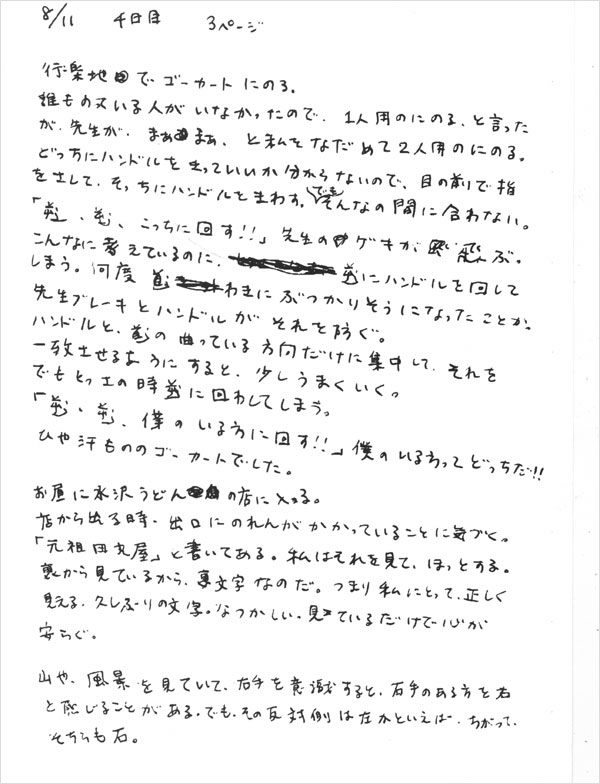 8/11 4日目 3ページ
行楽地でゴーカートにのる。
誰ものっている人がいなかったので、1人用のにのる、と言った
が、先生が、まぁまぁ、と私をなだめて2人用のにのる。
どっちにハンドルを切っていいか分からないので、目の前で指
をさして、そっちにハンドルをまわす。でもそんなの間に合わない。
「逆、逆、こっちに回す!!」先生のゲキが飛ぶ。
こんなに考えているのに、逆にハンドルを回して
しまう。何度道わきにぶつかりそうになったことか。
先生ブレーキとハンドルがそれを防ぐ。
ハンドルと、道の曲っている方向だけに集中して、それを
一致させるようにすると、少しうまくいく。
でもとっさの時逆に回わしてしまう。
「逆、逆、僕のいる方に回す!!」僕のいる方ってどっちだ!!
ひや汗もののゴーカートでした。
お昼に水沢うどんの店に入る。
店から出る時、出口にのれんがかかっていることに気づく。
「元祖田丸屋」と書いてある。私はそれを見て、ほっとする。
裏から見ているから、裏文字なのだ。つまり私にとって、正しく
見える、久しぶりの文字。なつかしい。見ているだけで心が
安らぐ。
山や、風景を見ていて、右手を意識すると、右手のある方を右
と感じることがある。でも、その反対側は左かといえば、ちがって、
そちらも右。